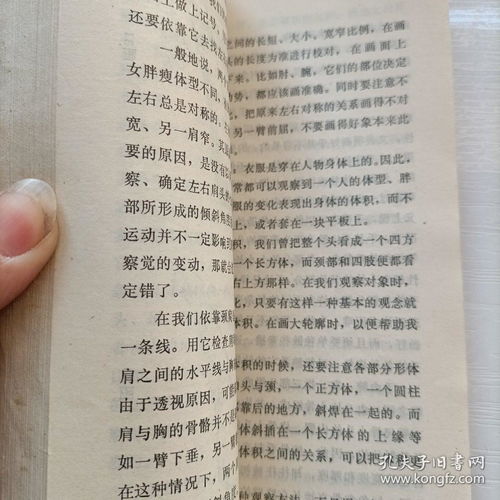 上做上记号。
还要依靠它去找左
一般地说，两
女胖瘦体型不同，
左右总是对称的。
宽、另一肩窄。其
要的原因，是没有
察、确定左右肩头
部所形成的倾斜角
运动并不一定影响
察觉的变动，那就会
定错了。
在我们依靠颈
一条线。用它检查
肩之间的水平线与
由于透视原因，可
肩与胸的骨骼并不
如一臂下垂，另一
在这种情况下，两个
之间的长短、大小、宽窄比例，在画
头的长度为准进行校对，在画面上
来。比如肘、腕，它们的部位决定
动势，都应该画准确。同时要注意不
化，把原来左右对称的关系画得不对
另一臂前屈，不要画得好象本来此
。衣服是穿在人物身体上的。因此，
常都可以观察到一个人的体型、胖
服的变化表现出身体的体积，而不
上，或者套在一块平板上。
积，我们曾把整个头看成一个四方
一个长方体，而颈部和四肢便都看
右上方那样。在我们观察对象时，
此，只要有这样一种基本的观念就
体积。在画大轮廓时，以便帮助我
体积的时候，还要注意各部分形体
如头与颈，一个正方体，一个圆柱
靠后的地方，斜焊在一起的。而
体斜插在一个长方体的上缘等
体积之间的关系，可以把科更
种观察方法
孔夫子旧书网